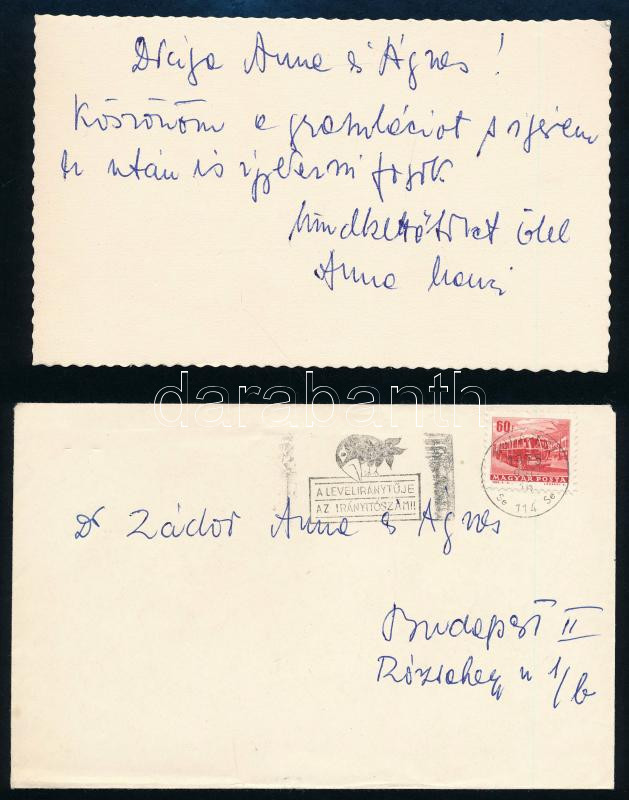 Drága Anna és Ágnes!
Köszönöm a gratulációt s ígérem
után is igyekezni fogok
Mindkettőtöket ölel
Anna
darabanth
60f
MAGYAR POSTA
A LEVÉL IRÁNYTŰJE
AZ IRÁNYÍTÓSZÁM!!
114
Dr Zádor Anna és Ágnes
Budapest II
Rózsahegy u 1/b